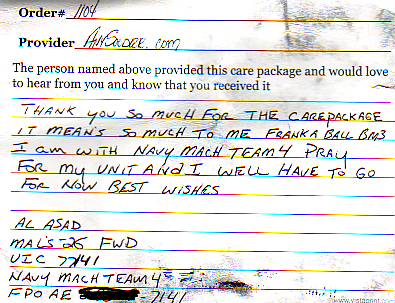 Order# 1104
Provider AnySoldier.com
The person named above provided this care package and would love
to hear from you and know that you received it
THANK YOU SO MUCH FOR THE CAREPACKAGE
IT MEANS SO MUCH TO ME FRANK A BALL BM3
I am WITH NAVY MACH TEAM 4 PRAY
FOR MY UNIT AND I WELL HAVE TO GO
FOR NOW BEST WISHES
AL ASAD
MAL'S 26 FWD
UIC 7141
NAVY MACH TEAM 4
FPO AE 7141
www.vistaprint.com